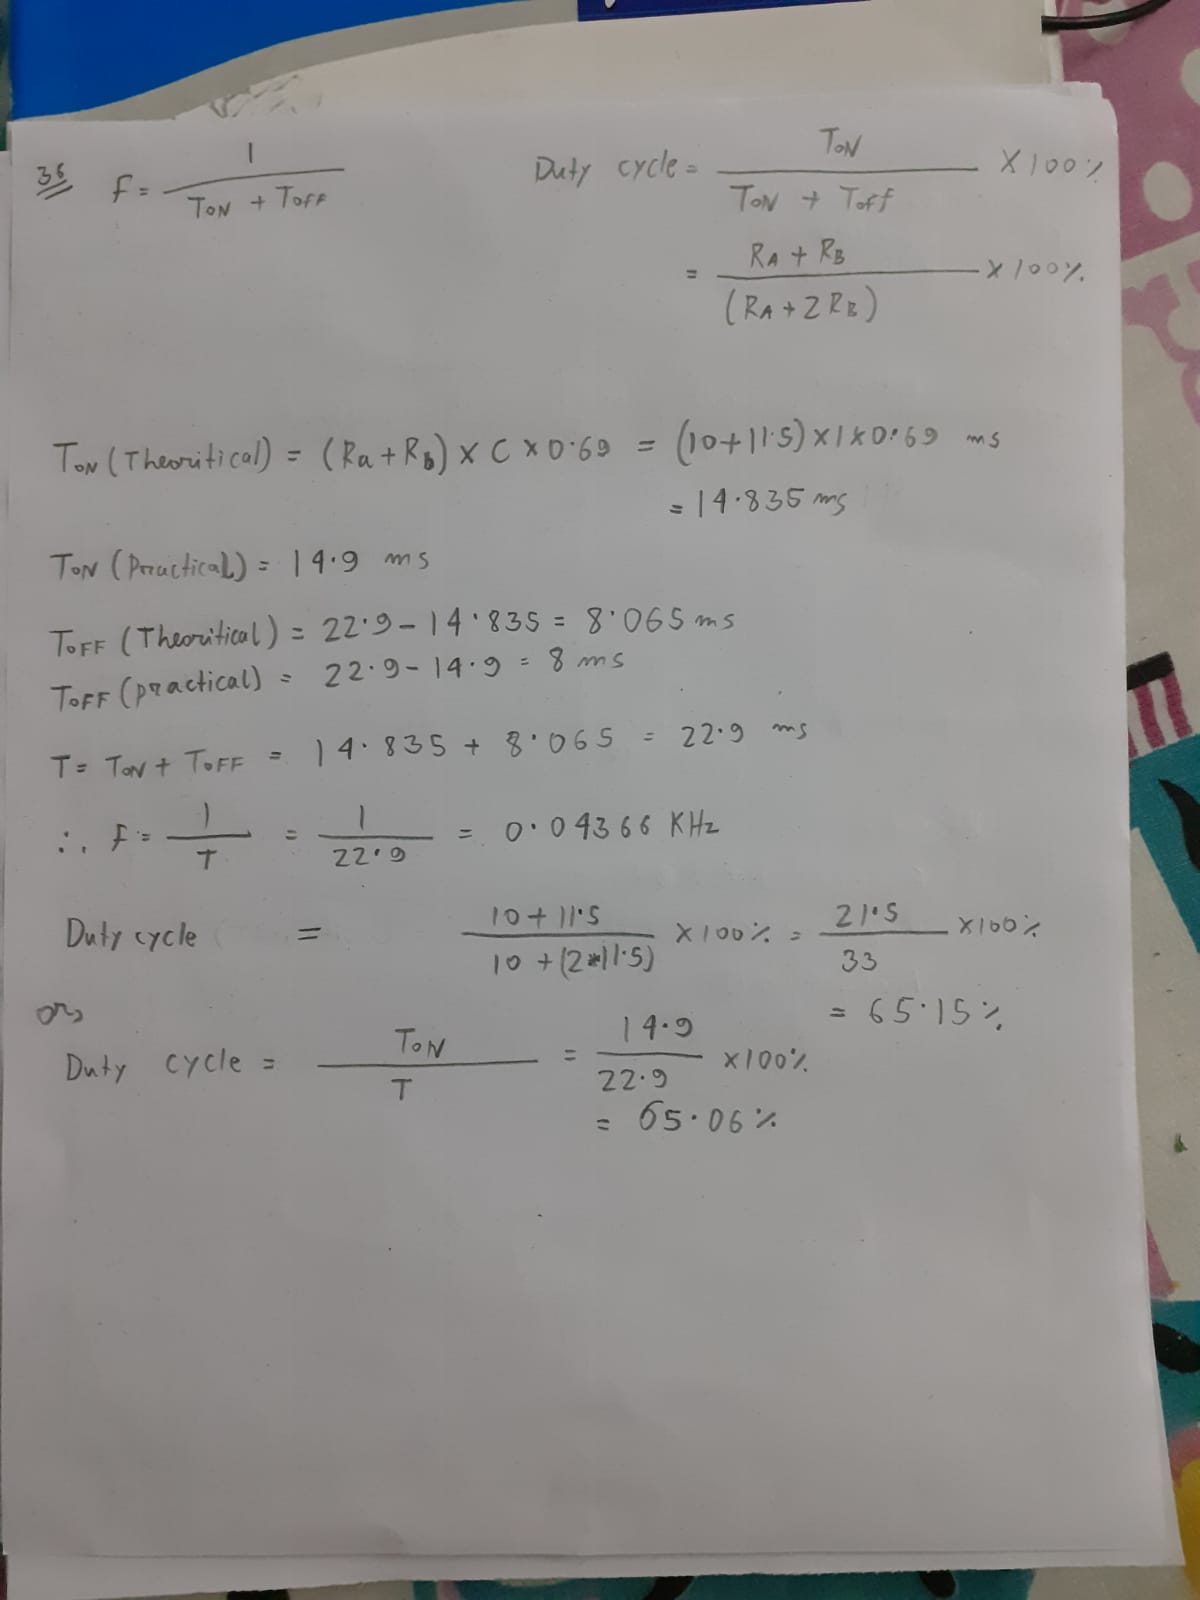 36
f = 1 / (TON + TOFF)
Duty cycle = TON / (TON + Toff) X 100%
= (RA + RB) / (RA + 2RB) X 100%
TON (Theoritical) = (Ra + Rb) X C X 0.69 = (10+11.5) X 1 X 0.69 ms
= 14.835 ms
TON (Practical) = 14.9 ms
TOFF (Theoritical) = 22.9 - 14.835 = 8.065 ms
TOFF (practical) = 22.9 - 14.9 = 8 ms
T = TON + TOFF = 14.835 + 8.065 = 22.9 ms
∴ f = 1 / T = 1 / 22.9 = 0.04366 KHz
Duty cycle = (10 + 11.5) / (10 + (2*11.5)) X 100% = 21.5 / 33 X 100%
= 65.15%
or,
Duty cycle = TON / T = 14.9 / 22.9 X 100%
= 65.06%